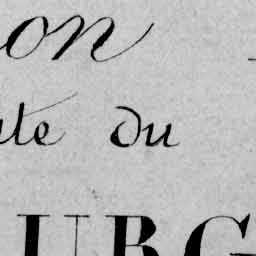 on
ute du
URG